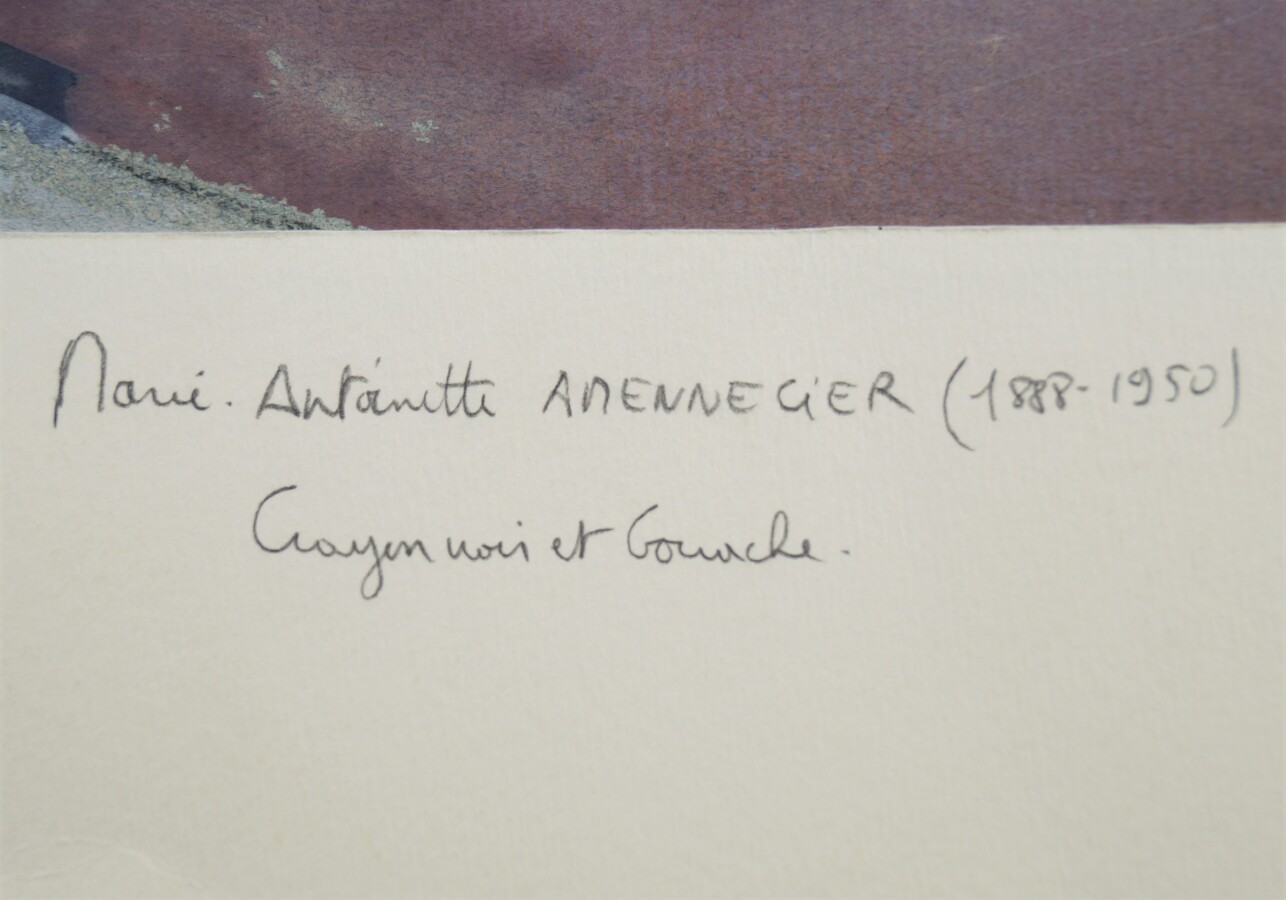 Marie-Antoinette AMENNECIER (1888-1950)
Crayon noir et Gouache.